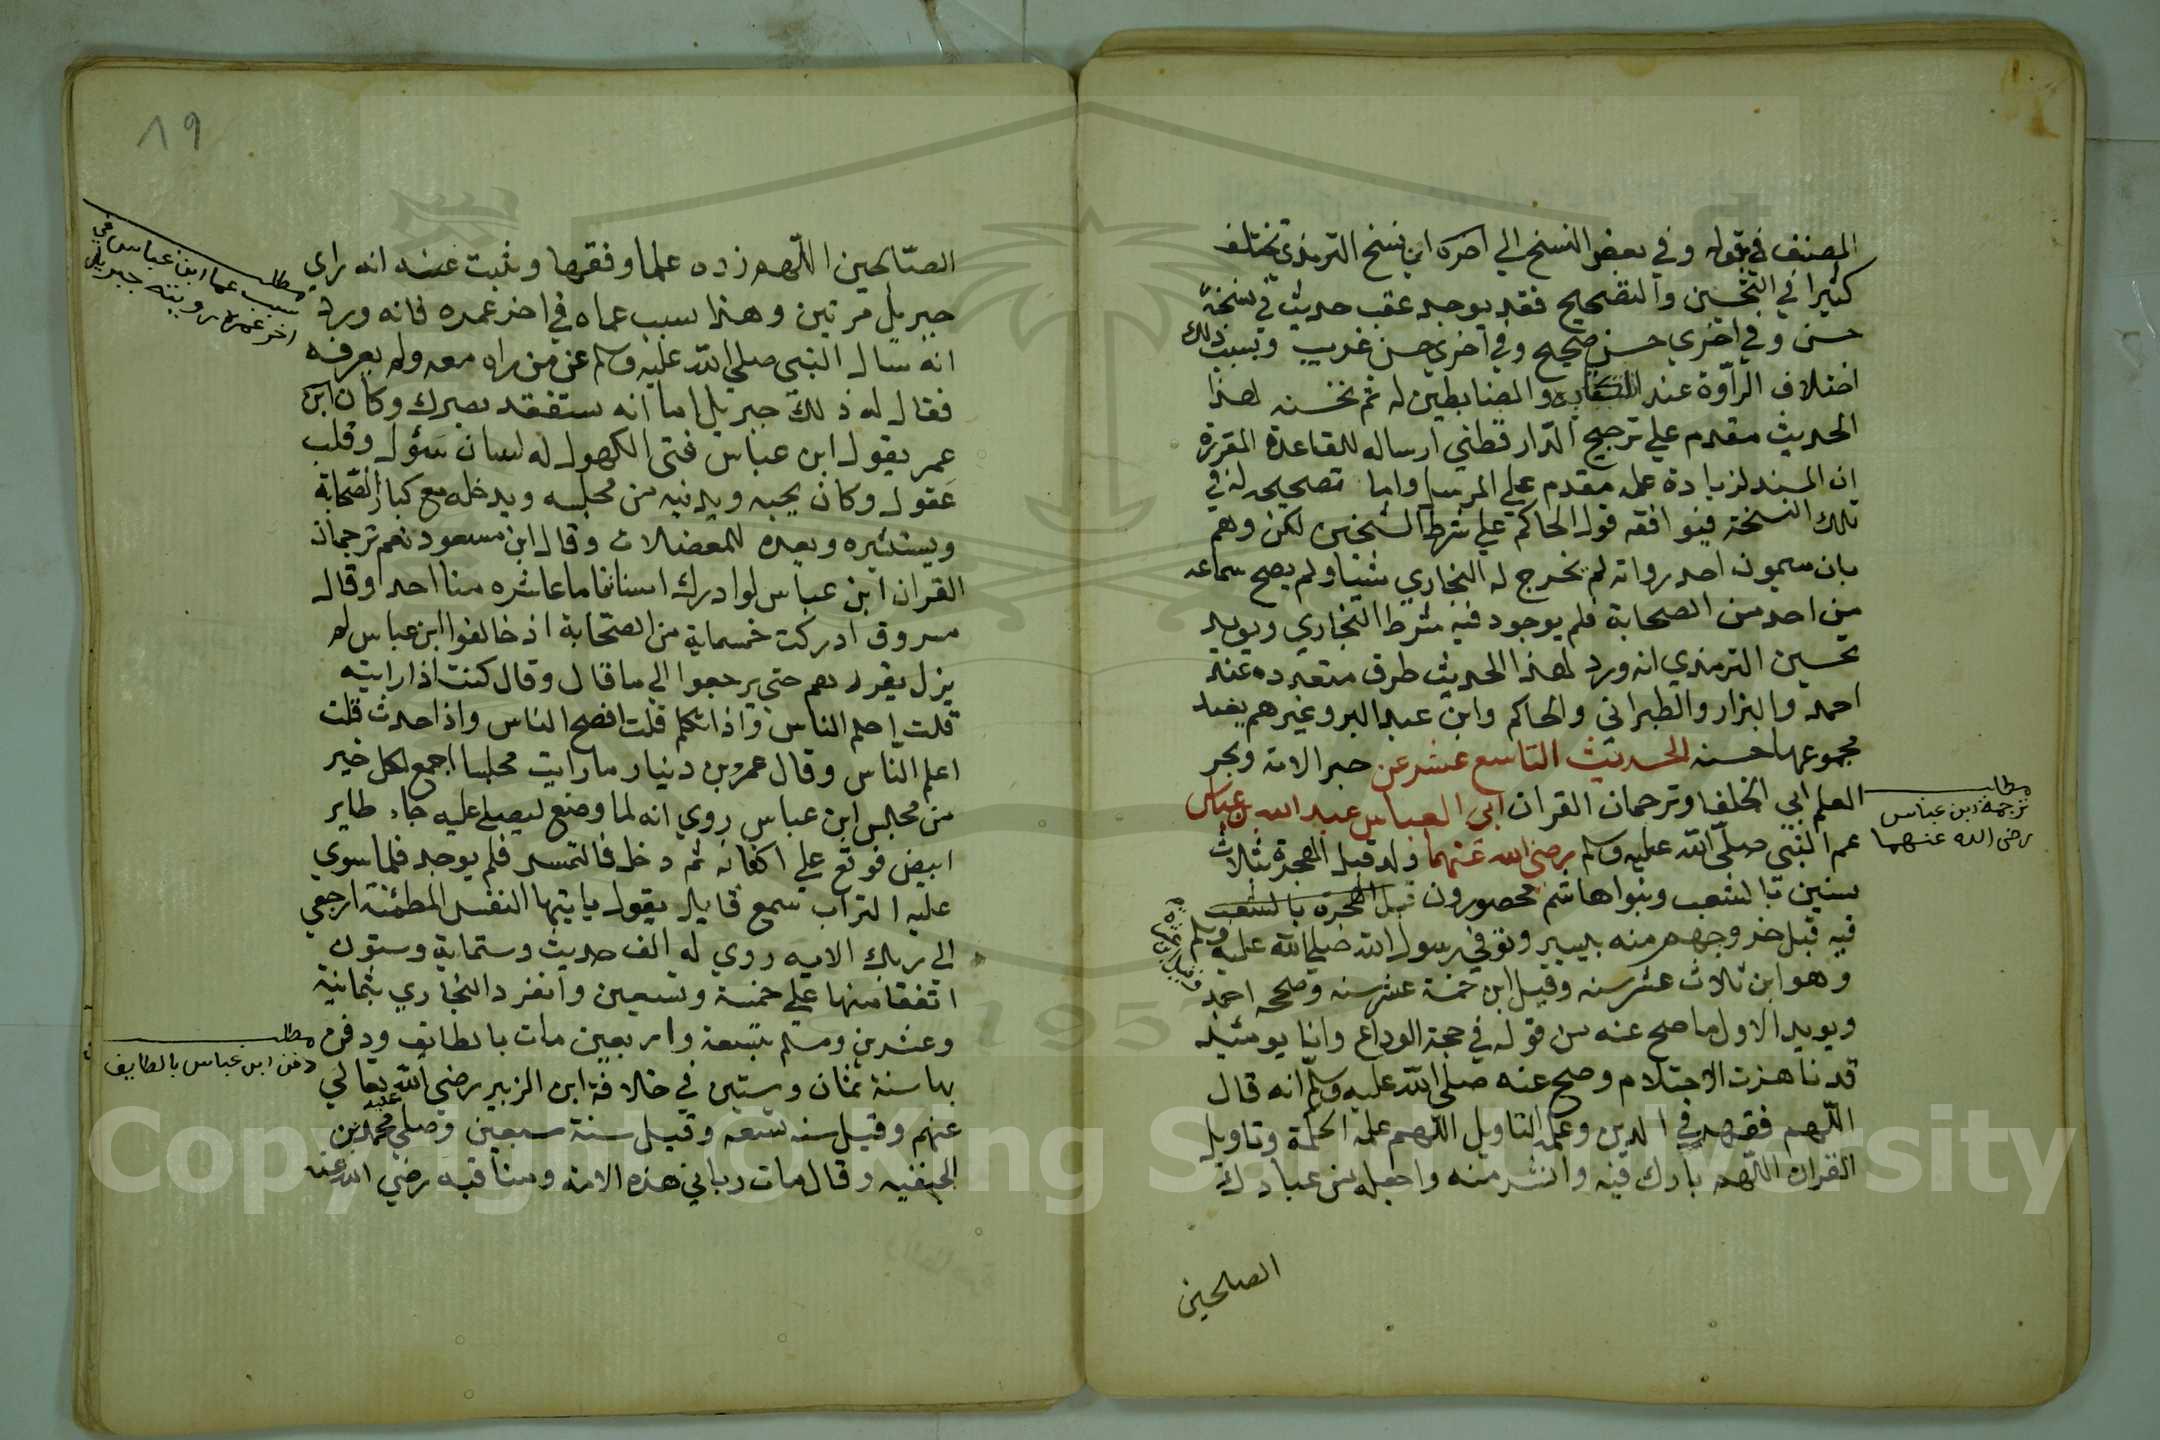 المصنف في قوله وفي بعض النسخ الي اخره اي نسخ الترمذي تختلف
كثيرا في التحسين والتصحيح فقد يوجد عقب حديث في نسخة
حسن وفي اخري حسن صحيح وفي اخري حسن غريب وبسبب ذلك
اختلاف الرواة عنه والضابطين له ثم تحسينه لهذا
الحديث مقدم علي ترجيح الدار قطني ارساله للقاعدة المقررة
ان المسند لزيادة علمه مقدم علي المرسل واما تصحيحه له في
تلك النسخة فيوافقه قول الحاكم علي شرط الشيخين لكن وهم
بان ميمون احد رواته لم يخرج له البخاري شيئا ولم يصح سماعه
من احد من الصحابة فلم يوجد فيه شرط البخاري ويويد
تحسين الترمذي انه ورد لهذا الحديث طرق متعدده عند
احمد والبزار والطبراني والحاكم وابن عبد البر وغيرهم يفيد
مجموعها حسنه الحديث التاسع عشر عن حبر الامة وبحر
العلم ابي الخلفا وترجمان القران ابي العباس عبد الله بن عباس
عم النبي صلى الله عليه وسلم رضي الله عنهما ولد قبل الهجرة بثلاث
سنين بالشعب وبنوا هاشم محصورون قبل الهجرة بالشعب
فيه قبل خروجهم منه بيسير وتوفي رسول الله صلي الله عليه وسلم
وهو ابن ثلاث عشر سنه وقيل ابن خمسة عشر سنه وصححه احمد
ويويد الاول ما صح عنه من قوله في حجة الوداع وانا يومئيذ
قد ناهزت الاحتلام وصح عنه صلى الله عليه وسلم انه قال
اللهم فقهه في الدين وعلمه التاويل اللهم علمه الحكمة وتاويل
القران اللهم بارك فيه وانشر منه واجعله من عبادك
الصلحين
مطلب
ترجمة ابن عباس
رضى الله عنهما
٨٩
الصالحين اللهم زده علما وفقها وثبت عنه انه راي
جبريل مرتين وهذا سبب عماه في اخر عمره فانه ورد
انه سال النبى صلي الله عليه وسلم عن من راه معه ولم يعرفه
فقال له ذلك جبريل اما انه ستفقد بصرك وكان ابن
عمر يقول ابن عباس فتى الكهول له لسان سؤل وقلب
عقول وكان يحبه ويدنيه من مجلسه ويدخله مع كبار الصحابة
ويستشيره ويعده للمعضلات وقال ابن مسعود نعم ترجمان
القران ابن عباس لو ادرك اسناننا ما عاشره منا احد وقال
مسروق ادركت خمسماية من الصحابة اذ خالفوا ابن عباس لم
يزل يقررهم حتي يرجعوا الي ما قال وقال كنت اذا رايته
قلت احلم الناس واذا تكلم قلت افصح الناس واذا حدث قلت
اعلم الناس وقال عمرو بن دينار ما رايت مجلسا اجمع لكل خير
من مجلس ابن عباس روي انه لما وضع ليصلى عليه جاء طاير
ابيض فوقع علي اكفانه ثم دخل فالتمس فلم يوجد فلما سوي
عليه التراب سمع قايل يقول يايتها النفس المطمئنة ارجعي
الى ربك الايه روي له الف حديث وستماية وستون
اتفقا منها علي خمسة وتسعين وانفرد البخاري بثمانية
وعشرين ومسلم بتسعة واربعين مات بالطايف ودفن
بها سنة ثمان وستين في خلافة ابن الزبير رضي الله تعالي
عنهم وقيل سنه تسعه وقيل سنة سبعين وصلي عليه محمد بن
الحنفيه وقال مات رباني هذه الامة ومناقبه رضي الله عنه
مطلب
سبب عما ابن عباس في
اخر عمره رويته جبريل
مطلب
دفن ابن عباس بالطايف